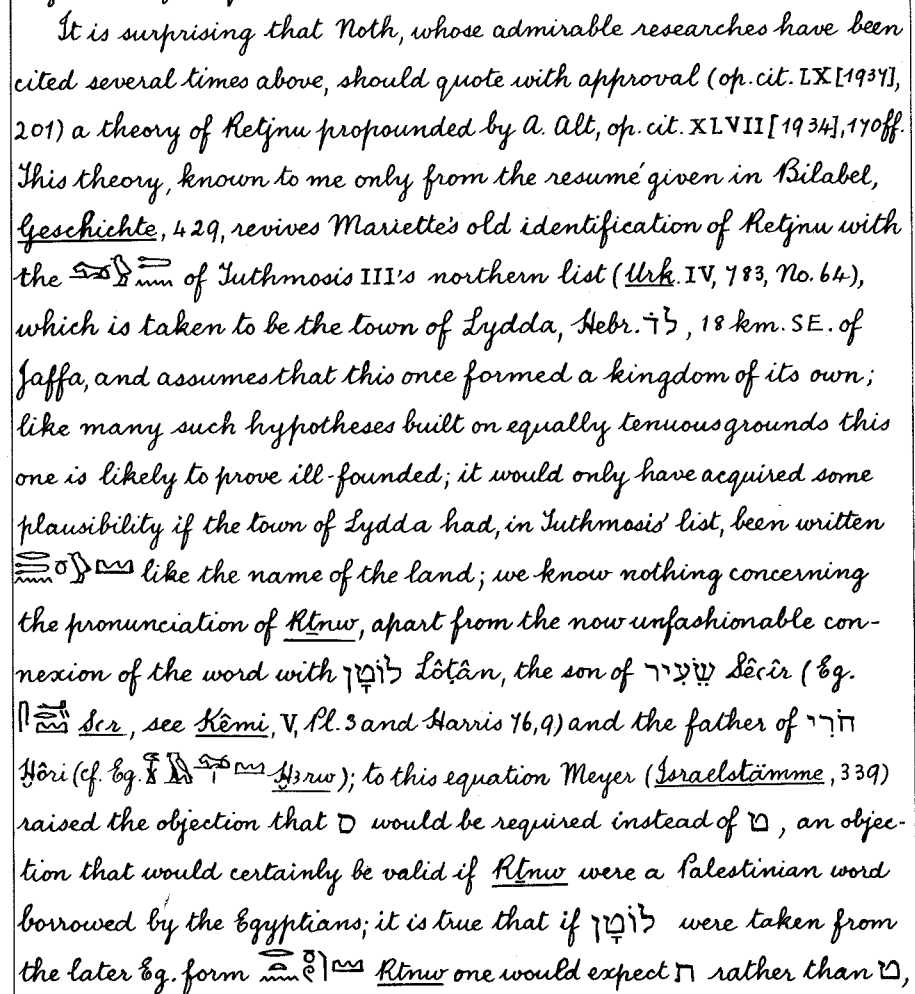 It is surprising that Noth, whose admirable researches have been
cited several times above, should quote with approval (op. cit. LX [1937],
201) a theory of Retjnu propounded by A. Alt, op. cit. XLVII [1934], 170ff.
This theory, known to me only from the resumé given in Bilabel,
Geschichte, 429, revives Mariette's old identification of Retjnu with
the of Tuthmosis III's northern list (Urk. IV, 783, No. 64),
which is taken to be the town of Lydda, Hebr. לֹד, 18 km. SE. of
Jaffa, and assumes that this once formed a kingdom of its own;
like many such hypotheses built on equally tenuous grounds this
one is likely to prove ill-founded; it would only have acquired some
plausibility if the town of Lydda had, in Tuthmosis' list, been written
like the name of the land; we know nothing concerning
the pronunciation of Rṯnw, apart from the now unfashionable con-
nexion of the word with לוֹטָן Lôṭân, the son of שֵׂעִיר Sēcîr (Eg.
Scr, see Kêmi, V, Pl. 3 and Harris 76,9) and the father of חֹרִי
Ḥôri (cf. Eg. Ḫꜣrw); to this equation Meyer (Israelstämme, 339)
raised the objection that ס would be required instead of ט, an objec-
tion that would certainly be valid if Rṯnw were a Palestinian word
borrowed by the Egyptians; it is true that if לוֹטָן were taken from
the later Eg. form Rtnw one would expect ת rather than ט,